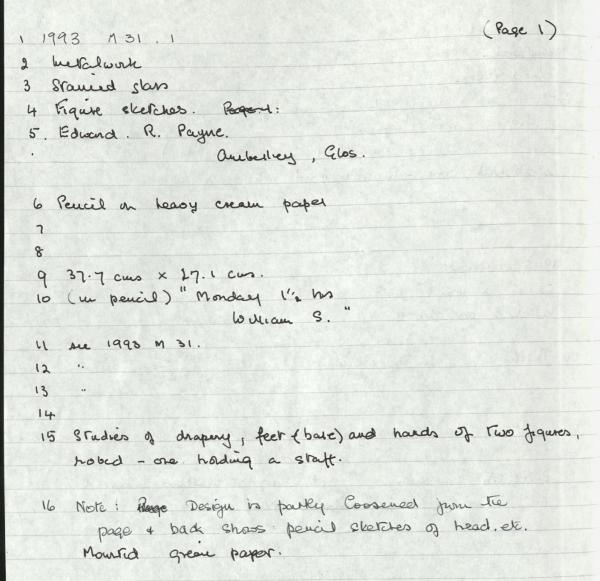 (Page 1)
1 1993 M 31 . 1
2 Metalwork
3 Stained glass
4 Figure sketches.
5. Edward . R. Payne.
Amberley , Glos.
6 Pencil on heavy cream paper
7
8
9 37.7 cms x 27.1 cms.
10 (in pencil) " Monday 1½ hrs
William S. "
11 see 1993 M 31.
12 "
13 "
14
15 Studies of drapery, feet (bare) and hands of two figures,
robed - one holding a staff.
16 Note : Design is partly loosened from the
page & back shows pencil sketches of head, etc.
Mounted green paper.